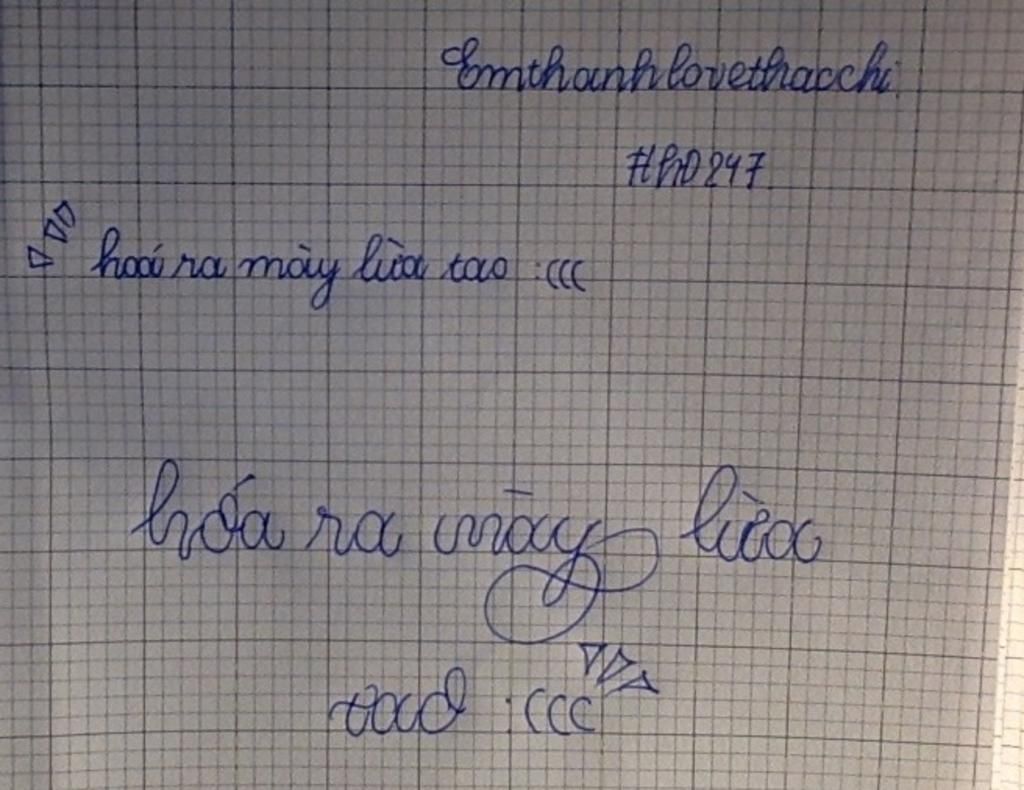 Emthanhlovethaochi
#hD247
hoá ra mày lừa tao :(((
hóa ra mày lừa
tao :(((